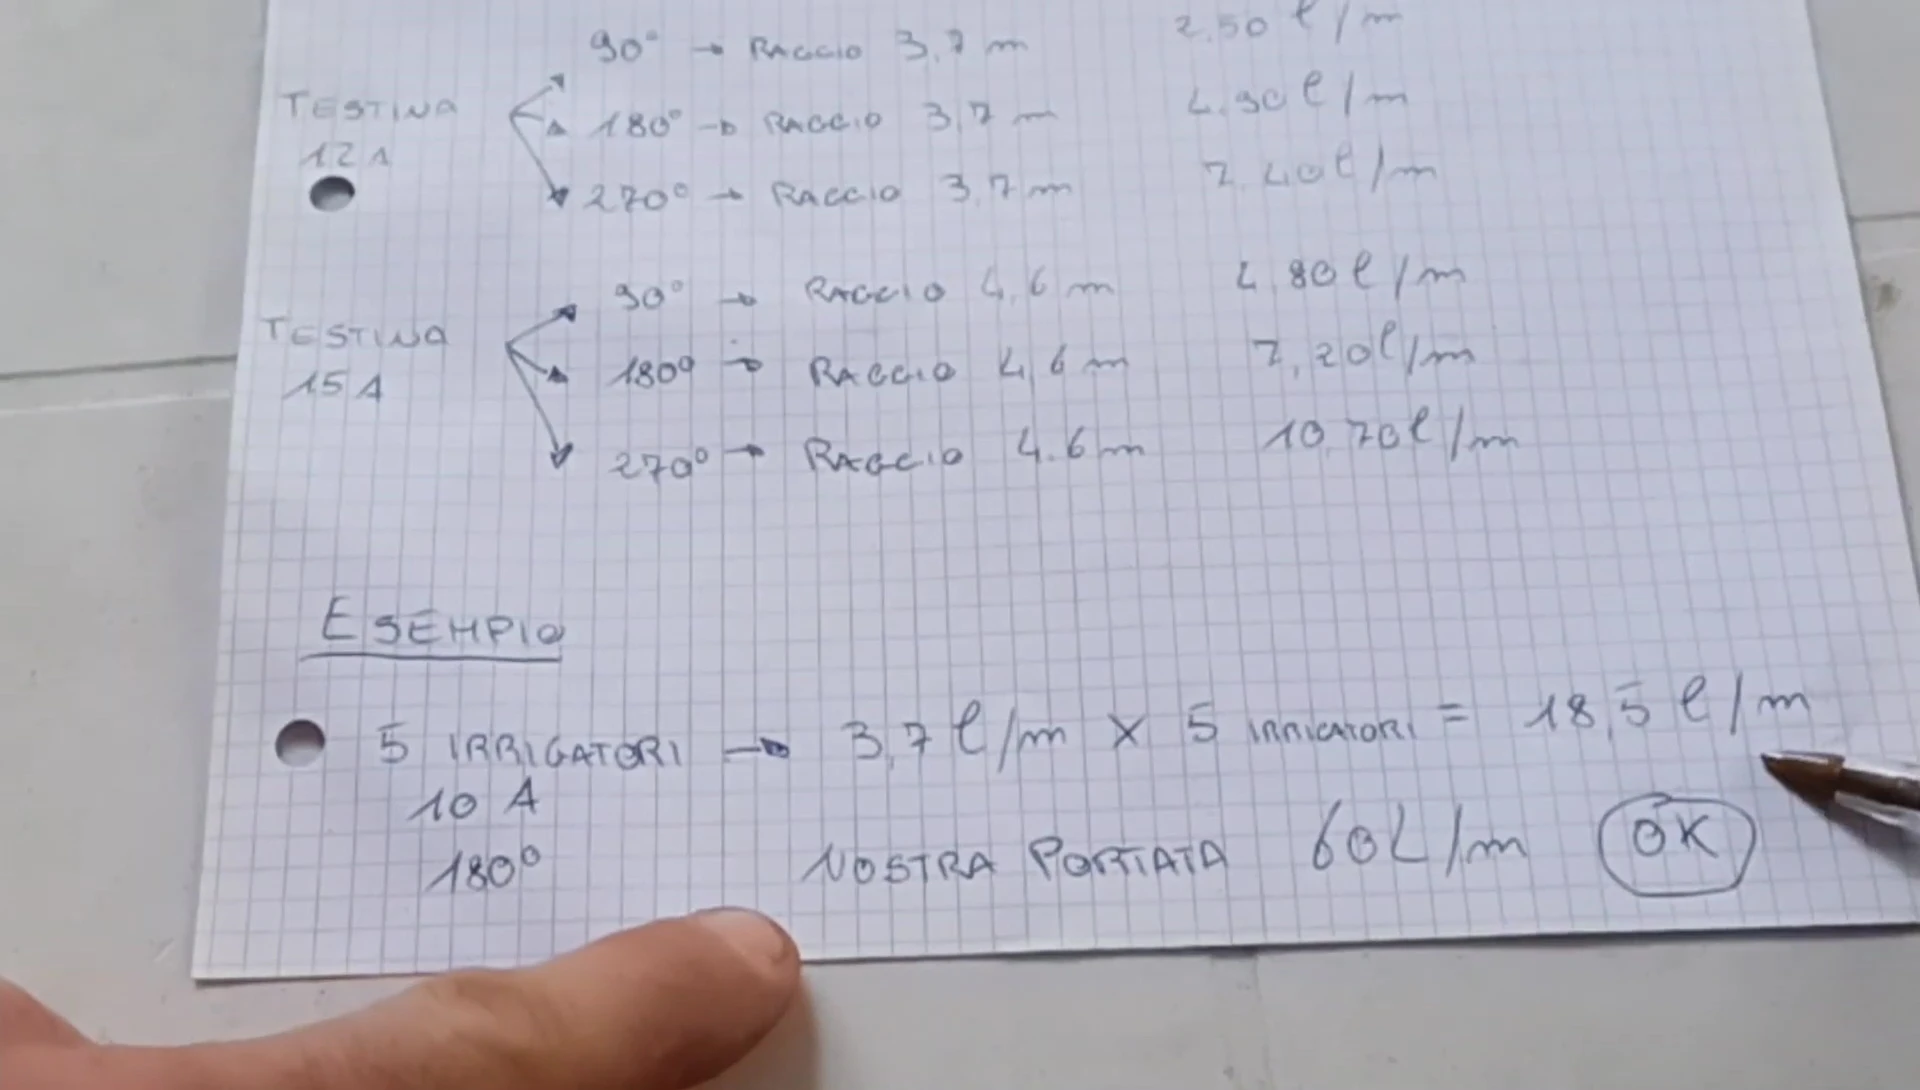 90° → RAGGIO 3,7 m 2,50 l/m
TESTINA 12A
180° → RAGGIO 3,7 m 4,90 l/m
270° → RAGGIO 3,7 m 7,40 l/m
TESTINA 15A
90° → RAGGIO 4,6 m 4,80 l/m
180° → RAGGIO 4,6 m 7,20 l/m
270° → RAGGIO 4.6 m 10,70 l/m
ESEMPIO
5 IRRIGATORI → 3,7 l/m x 5 IRRIGATORI = 18,5 l/m
10 A
180° NOSTRA PORTATA 60 L/m OK